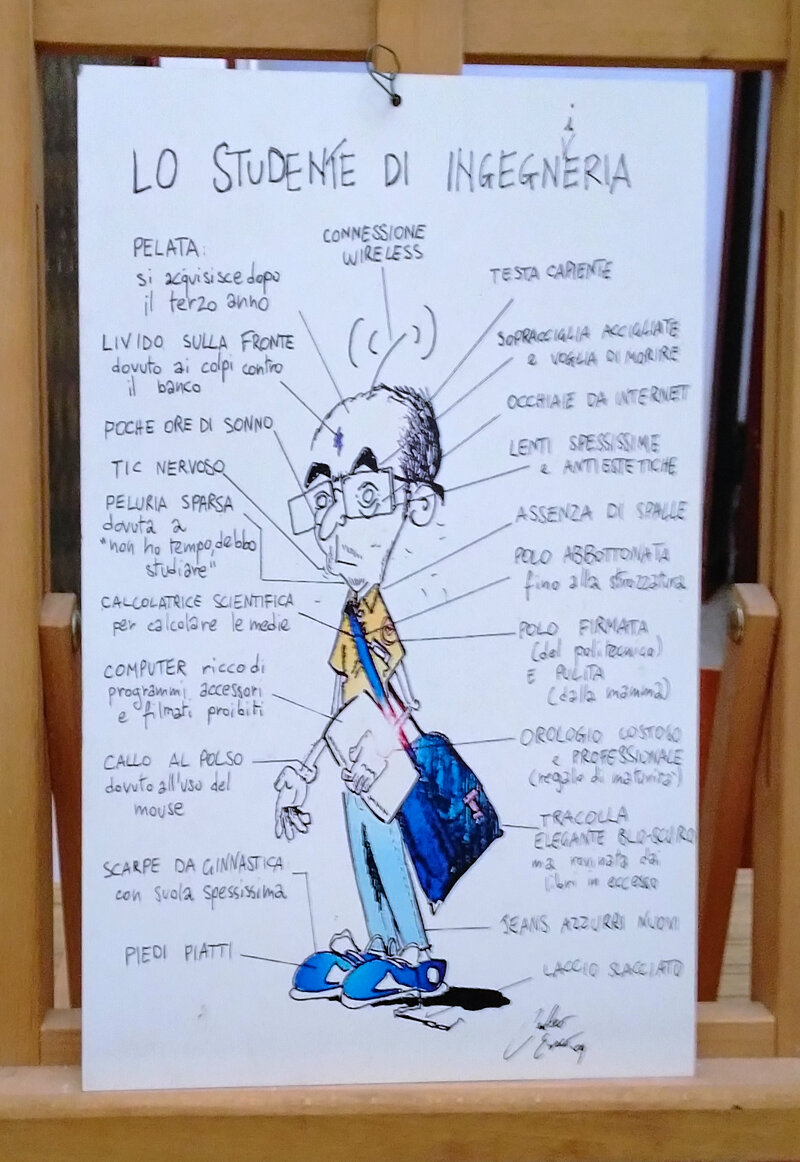 LO STUDENTE DI INGEGNERIA
i
PELATA:
si acquisisce dopo
il terzo anno
LIVIDO SULLA FRONTE
dovuto ai colpi contro
il banco
POCHE ORE DI SONNO
TIC NERVOSO
PELURIA SPARSA
dovuta a
"non ho tempo, debbo
studiare"
CALCOLATRICE SCIENTIFICA
per calcolare le medie
COMPUTER ricco di
programmi, accessori
e filmati proibiti
CALLO AL POLSO
dovuto all'uso del
mouse
SCARPE DA GINNASTICA
con suola spessissima
PIEDI PIATTI
CONNESSIONE
WIRELESS
TESTA CAPIENTE
SOPRACCIGLIA ACCIGLIATE
e VOGLIA DI MORIRE
OCCHIAIE DA INTERNET
LENTI SPESSISSIME
e ANTIESTETICHE
ASSENZA DI SPALLE
POLO ABBOTTONATA
fino alla strozzatura
POLO FIRMATA
(del politecnico)
E PULITA
(dalla mamma)
OROLOGIO COSTOSO
e PROFESSIONALE
(regalo di maturità)
TRACOLLA
ELEGANTE BLU-SCURO
ma rovinata dai
libri in eccesso
JEANS AZZURRI NUOVI
LACCIO SLACCIATO